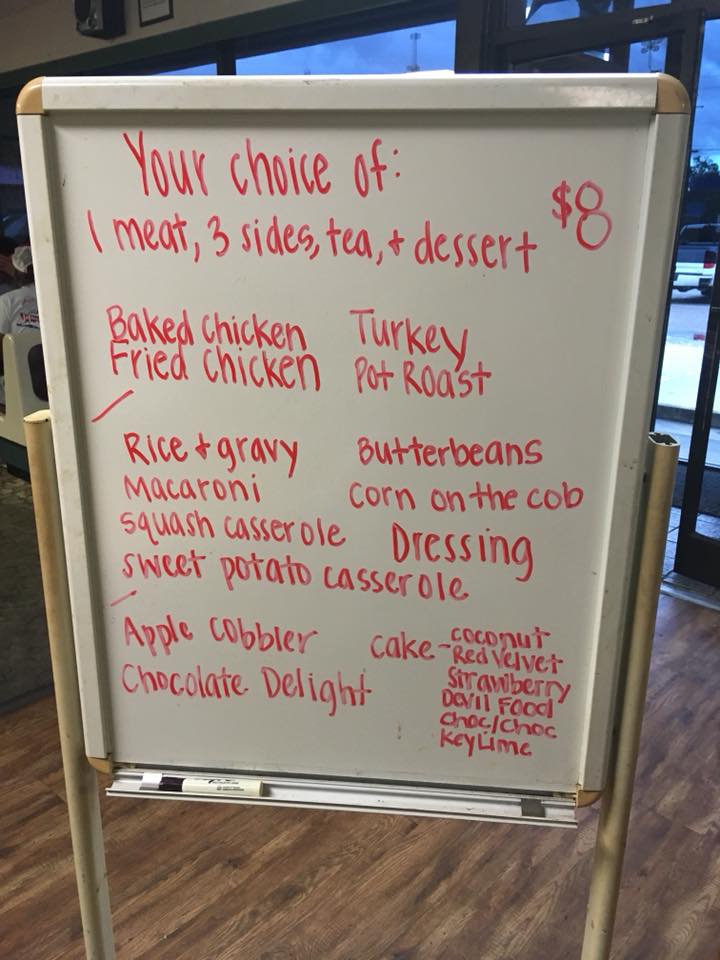 Your choice of:
1 meat, 3 sides, tea, + dessert $8
Baked chicken Turkey
Fried chicken Pot Roast
Rice + gravy Butterbeans
Macaroni corn on the cob
squash casserole Dressing
sweet potato casserole
Apple cobbler cake - coconut
Red Velvet
Chocolate Delight Strawberry
Devil Food
choc/choc
Key Lime